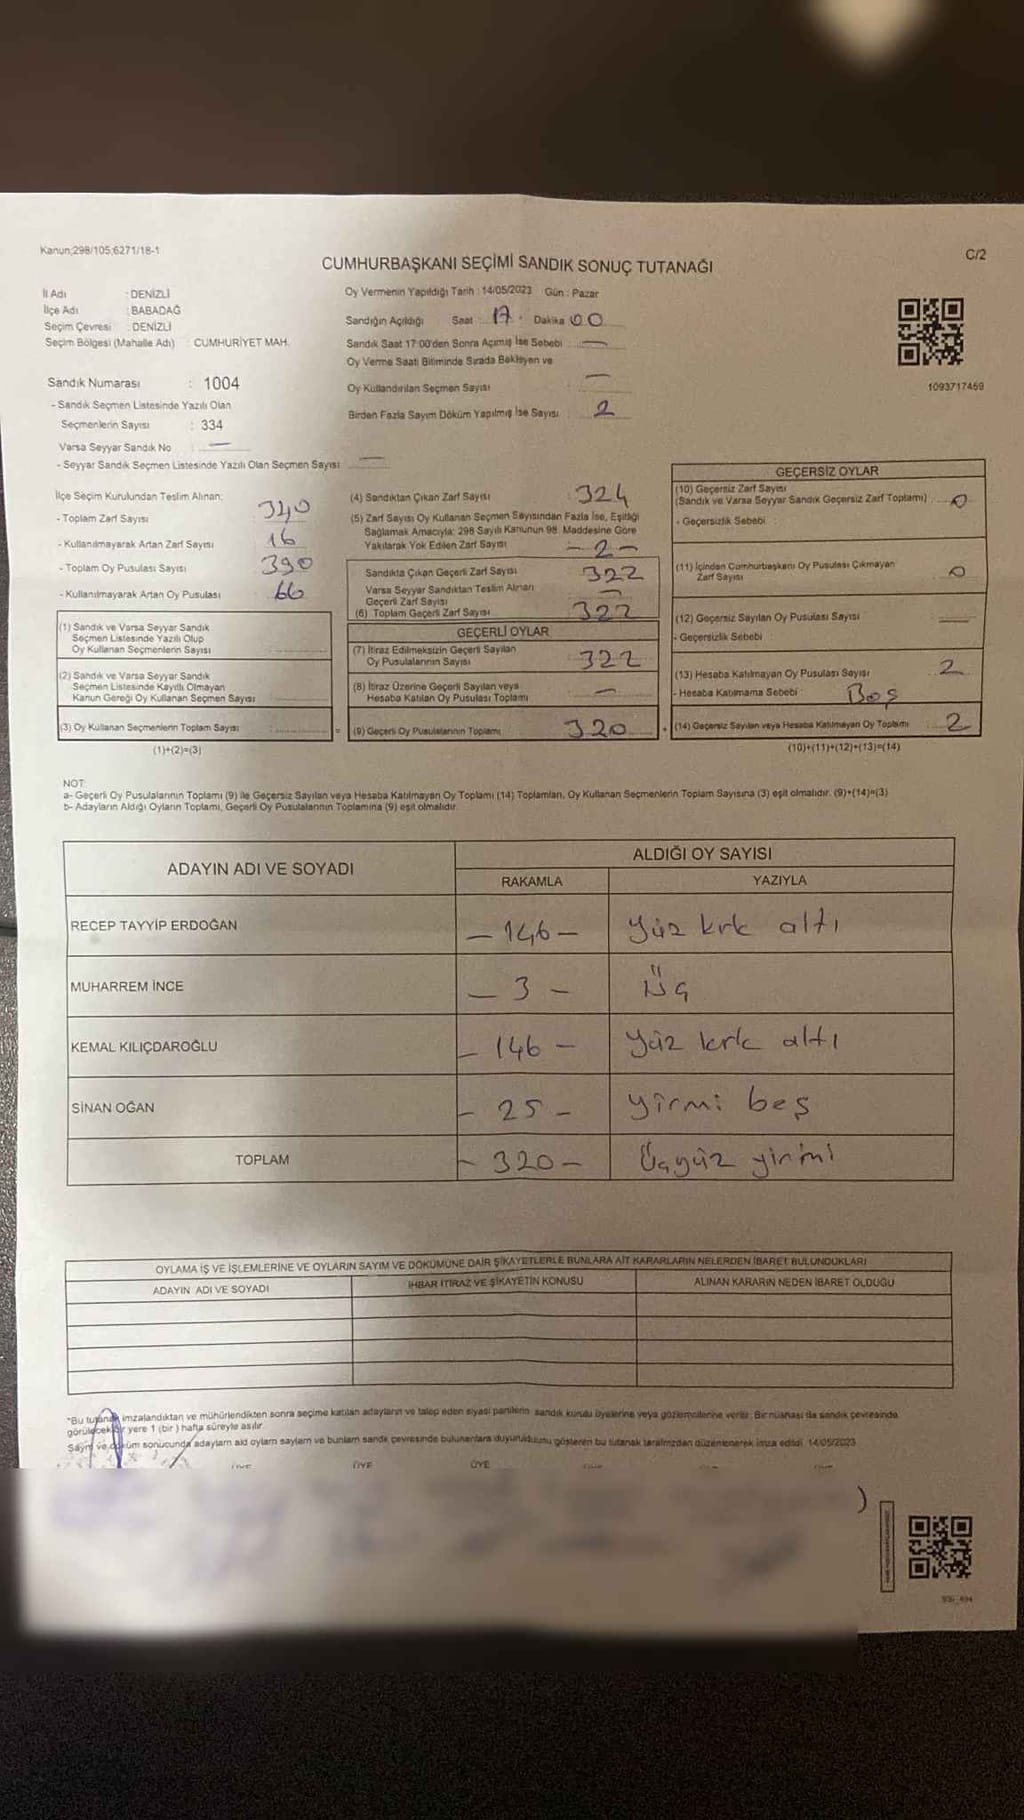 Kanun;298/105;6271/18-1
C/2
CUMHURBAŞKANI SEÇİMİ SANDIK SONUÇ TUTANAĞI
İl Adı : DENİZLİ
İlçe Adı : BABADAĞ
Seçim Çevresi : DENİZLİ
Seçim Bölgesi (Mahalle Adı) : CUMHURİYET MAH.
Sandık Numarası : 1004
- Sandık Seçmen Listesinde Yazılı Olan
Seçmenlerin Sayısı : 334
Varsa Seyyar Sandık No : —
- Seyyar Sandık Seçmen Listesinde Yazılı Olan Seçmen Sayısı : —
Oy Vermenin Yapıldığı Tarih : 14/05/2023 Gün : Pazar
Sandığın Açıldığı Saat : 17. Dakika 00
Sandık Saat 17:00'den Sonra Açımış İse Sebebi : —
Oy Verme Saati Bitiminde Sırada Bekleyen ve
Oy Kullandırılan Seçmen Sayısı : —
Birden Fazla Sayım Döküm Yapılmış İse Sayısı : 2
1093717459
İlçe Seçim Kurulundan Teslim Alınan;
- Toplam Zarf Sayısı : 340
- Kullanılmayarak Artan Zarf Sayısı : 16
- Toplam Oy Pusulası Sayısı : 390
- Kullanılmayarak Artan Oy Pusulası : 66
(1) Sandık ve Varsa Seyyar Sandık
Seçmen Listesinde Yazılı Olup
Oy Kullanan Seçmenlerin Sayısı :
(2) Sandık ve Varsa Seyyar Sandık
Seçmen Listesinde Kayıtlı Olmayan
Kanun Gereği Oy Kullanan Seçmen Sayısı :
(3) Oy Kullanan Seçmenlerin Toplam Sayısı :
(1)+(2)=(3)
(4) Sandıktan Çıkan Zarf Sayısı : 324
(5) Zarf Sayısı Oy Kullanan Seçmen Sayısından Fazla İse, Eşitliği
Sağlamak Amacıyla; 298 Sayılı Kanunun 98. Maddesine Göre
Yakılarak Yok Edilen Zarf Sayısı : - 2 -
Sandıkta Çıkan Geçerli Zarf Sayısı : 322
Varsa Seyyar Sandıktan Teslim Alınan
Geçerli Zarf Sayısı : —
(6) Toplam Geçerli Zarf Sayısı : 322
GEÇERLİ OYLAR
(7) İtiraz Edilmeksizin Geçerli Sayılan
Oy Pusulalarının Sayısı : 322
(8) İtiraz Üzerine Geçerli Sayılan veya
Hesaba Katılan Oy Pusulası Toplamı : —
= (9) Geçerli Oy Pusulalarının Toplamı : 320 +
GEÇERSİZ OYLAR
(10) Geçersiz Zarf Sayısı
(Sandık ve Varsa Seyyar Sandık Geçersiz Zarf Toplamı) : 0
- Geçersizlik Sebebi :
(11) İçinden Cumhurbaşkanı Oy Pusulası Çıkmayan
Zarf Sayısı : 0
(12) Geçersiz Sayılan Oy Pusulası Sayısı : —
- Geçersizlik Sebebi :
(13) Hesaba Katılmayan Oy Pusulası Sayısı : 2
- Hesaba Katılmama Sebebi : Boş
(14) Geçersiz Sayılan veya Hesaba Katılmayan Oy Toplamı : 2
(10)+(11)+(12)+(13)=(14)
NOT:
a- Geçerli Oy Pusulalarının Toplamı (9) ile Geçersiz Sayılan veya Hesaba Katılmayan Oy Toplamı (14) Toplamları, Oy Kullanan Seçmenlerin Toplam Sayısına (3) eşit olmalıdır. (9)+(14)=(3)
b- Adayların Aldığı Oyların Toplamı, Geçerli Oy Pusulalarının Toplamına (9) eşit olmalıdır.
ADAYIN ADI VE SOYADI ALDIĞI OY SAYISI
RAKAMLA YAZIYLA
RECEP TAYYİP ERDOĞAN - 146 - Yüz kırk altı
MUHARREM İNCE - 3 - Üç
KEMAL KILIÇDAROĞLU - 146 - Yüz kırk altı
SİNAN OĞAN - 25 - yirmi beş
TOPLAM - 320 - Üçyüz yirmi
OYLAMA İŞ VE İŞLEMLERİNE VE OYLARIN SAYIM VE DÖKÜMÜNE DAİR ŞİKAYETLERLE BUNLARA AİT KARARLARIN NELERDEN İBARET BULUNDUKLARI
ADAYIN ADI VE SOYADI İHBAR İTİRAZ VE ŞİKAYETİN KONUSU ALINAN KARARIN NEDEN İBARET OLDUĞU
"Bu tutanak imzalandıktan ve mühürlendikten sonra seçime katılan adayların ve talep eden siyasi partilerin sandık kurulu üyelerine veya gözlemcilerine verilir. Bir nüshası da sandık çevresinde
görülecek bir yere 1 (bir) hafta süreyle asılır.
Sayım ve döküm sonucunda adayların ald oyların sayıların ve bunların sandık çevresinde bulunanlara duyurulduğunu gösteren bu tutanak tarafımızdan düzenlenerek imza edildi. 14/05/2023
ÜYE ÜYE